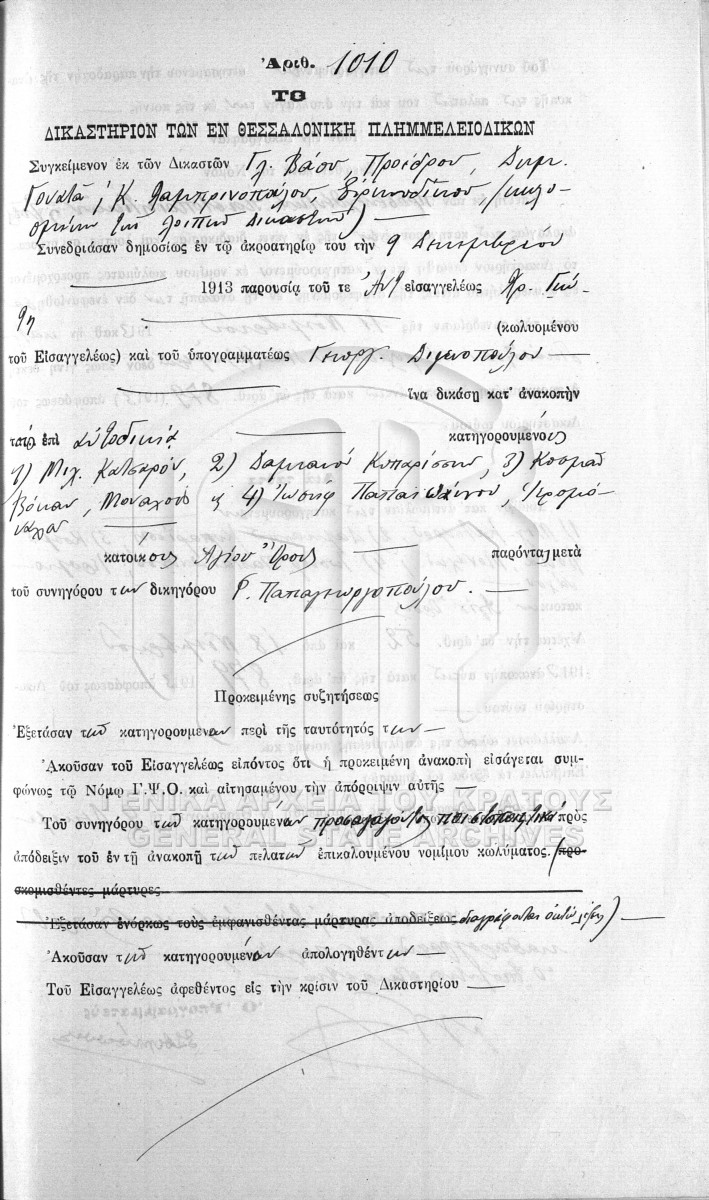 Ἀριθ. 1010
ΤΟ
ΔΙΚΑΣΤΗΡΙΟΝ ΤΩΝ ΕΝ ΘΕΣΣΑΛΟΝΙΚΗ ΠΛΗΜΜΕΛΕΙΟΔΙΚΩΝ
Συγκείμενον ἐκ τῶν Δικαστῶν Γλ. Βάσου Προέδρου, Δημ.
Γονατᾶ, Κ. Λαμπρινοπούλου, Εἰρηνοδίκου (κωλυο-
μένων τῶν λοιπῶν Δικαστῶν)
Συνεδριάσαν δημοσίως ἐν τῷ ἀκροατηρίῳ του τὴν 9 Δεκεμβρίου
1913 παρουσίᾳ τοῦ τε Ἀντεισαγγελέως Χρ.
(κωλυομένου
τοῦ Εἰσαγγελέως) καὶ τοῦ ὑπογραμματέως Γεωργ. Διγενοπούλου
ἵνα δικάσῃ κατ' ἀνακοπὴν
ἐπὶ αὐτοδικίᾳ κατηγορουμένους
1) Μιχ. Κατσαρόν, 2) Δαμιανοῦ Κυπαρίσση, 3) Κοσμᾶ
Βόκαν, Μοναχοὺς & 4) Ἰωσὴφ Παπαϊωάννου, Ἱερομό-
ναχον
κατοίκους Ἁγίου Ὄρους παρόντας μετὰ
τοῦ συνηγόρου των δικηγόρου Γ. Παπαγεωργοπούλου.
Προκειμένης συζητήσεως
Ἐξετάσαν τοὺς κατηγορουμένους περὶ τῆς ταυτότητός των
Ἀκοῦσαν τοῦ Εἰσαγγελέως εἰπόντος ὅτι ἡ προκειμένη ἀνακοπὴ εἰσάγεται συμ-
φώνως τῷ Νόμῳ Γ.Ψ.Ο. καὶ αἰτησαμένου τὴν ἀπόρριψιν αὐτῆς
Τοῦ συνηγόρου τῶν κατηγορουμένων προσαγαγόντος πιστοποιητικὰ πρὸς
ἀπόδειξιν τοῦ ἐν τῇ ἀνακοπῇ τῶν πελατῶν ἐπικαλουμένου νομίμου κωλύματος. (προ-
σκομισθέντες μάρτυρες
Ἐξετάσαν ἐνόρκως τοὺς ἐμφανισθέντας μάρτυρας ἀποδείξεως διαγράφονται ὀκτὼ λέξεις)
Ἀκοῦσαν τῶν κατηγορουμένων ἀπολογηθέντων
Τοῦ Εἰσαγγελέως ἀφεθέντος εἰς τὴν κρίσιν τοῦ Δικαστηρίου
ΓΕΝΙΚΑ ΑΡΧΕΙΑ ΤΟΥ ΚΡΑΤΟΥΣ
GENERAL STATE ARCHIVES